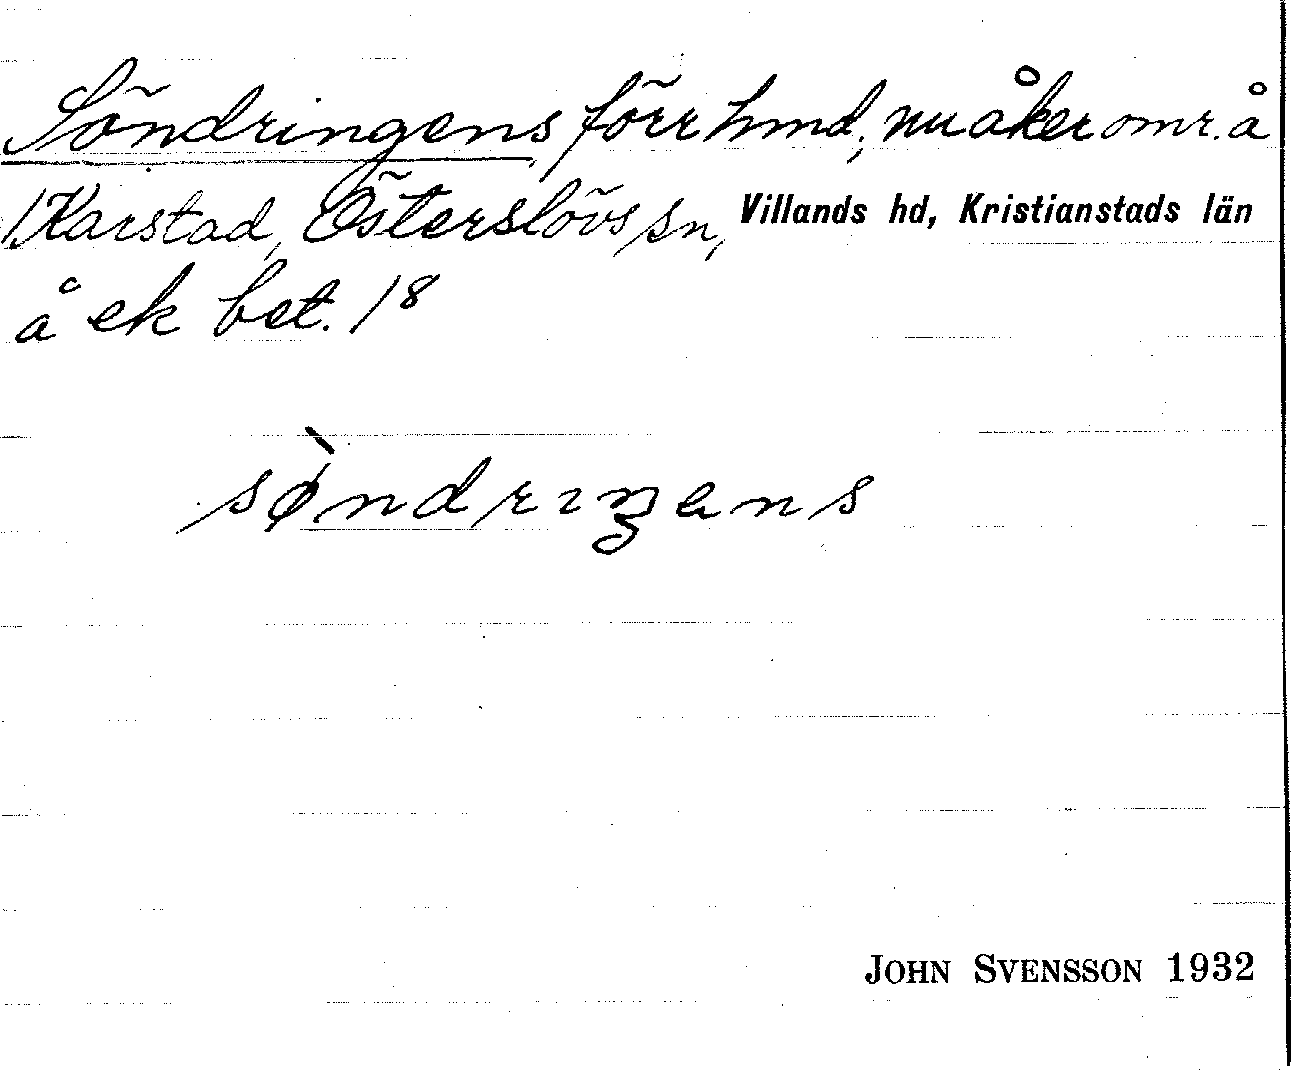 Söndringens förr hmd, nu åkeromr. å
Karstad, Österslövs sn, Villands hd, Kristianstads län
å ek bet. 18
søndrıŋens
JOHN SVENSSON 1932